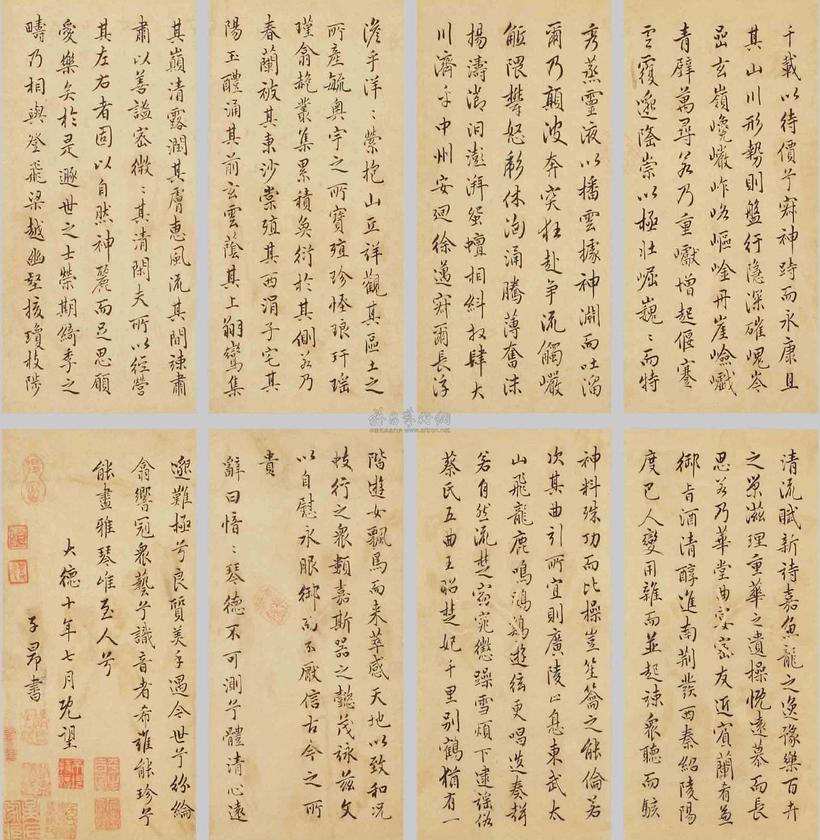 千載以待價兮寂神跱而永康且
其山川形勢則盤紆隱深確嵬岑
嵓玄嶺巉巖岞崿嶇崟丹崖嶮巇
青壁萬尋若乃重巘增起偃蹇
雲覆邈隆崇以極壯崛巍々而特
秀蒸靈液以播雲據神淵而吐溜
爾乃顛波奔突狂赴爭流觸巖
觝隈鬱怒彪休洶涌騰薄奮沫
揚濤瀄汩澎湃蜿蟺相糾放肆大
川濟乎中州安迴徐邁寂爾長浮
澹乎洋々縈抱山丘詳觀其區土之
所產毓奧宇之所寶殖珍怪琅玕瑶
瑾翕赩叢集累積奐衍於其側若乃
春蘭被其東沙棠殖其西涓子宅其
陽玉醴涌其前玄雲蔭其上翔鸞集
其巔清露潤其膚惠風流其間竦肅
肅以善謐密微々其清閑夫所以經營
其左右者固以自然神麗而足思願
愛樂矣於是遯世之士榮期綺季之
疇乃相與登飛梁越幽壑援瓊枝陟
清流賦新詩嘉魚龍之逸豫樂百卉
之榮滋理重華之遺操慨遠慕而長
思若乃華堂曲宴密友近賓蘭肴兼
御旨酒清醇進南荆發西秦紹陵陽
度巴人變用雜而並起竦衆聽而駭
神料殊功而比操豈笙籥之能倫若
次其曲引所宜則廣陵止息東武太
山飛龍鹿鳴鵾鷄遊絃更唱迭奏聲
若自然流楚窈窕懲躁雪煩下逮謡俗
蔡氏五曲王昭楚妃千里别鶴猶有一
階遊女飄焉而来萃感天地以致和况
蚑行之衆類嘉斯器之懿茂詠兹文
以自慰永服御而不厭信古今之所
貴
辭曰愔々琴德不可測兮體清心遠
邈難極兮良質美手遇今世兮紛綸
翕響冠衆藝兮識音者希誰能珍兮
能盡雅琴唯至人兮
大德十年七月既望
子昂書